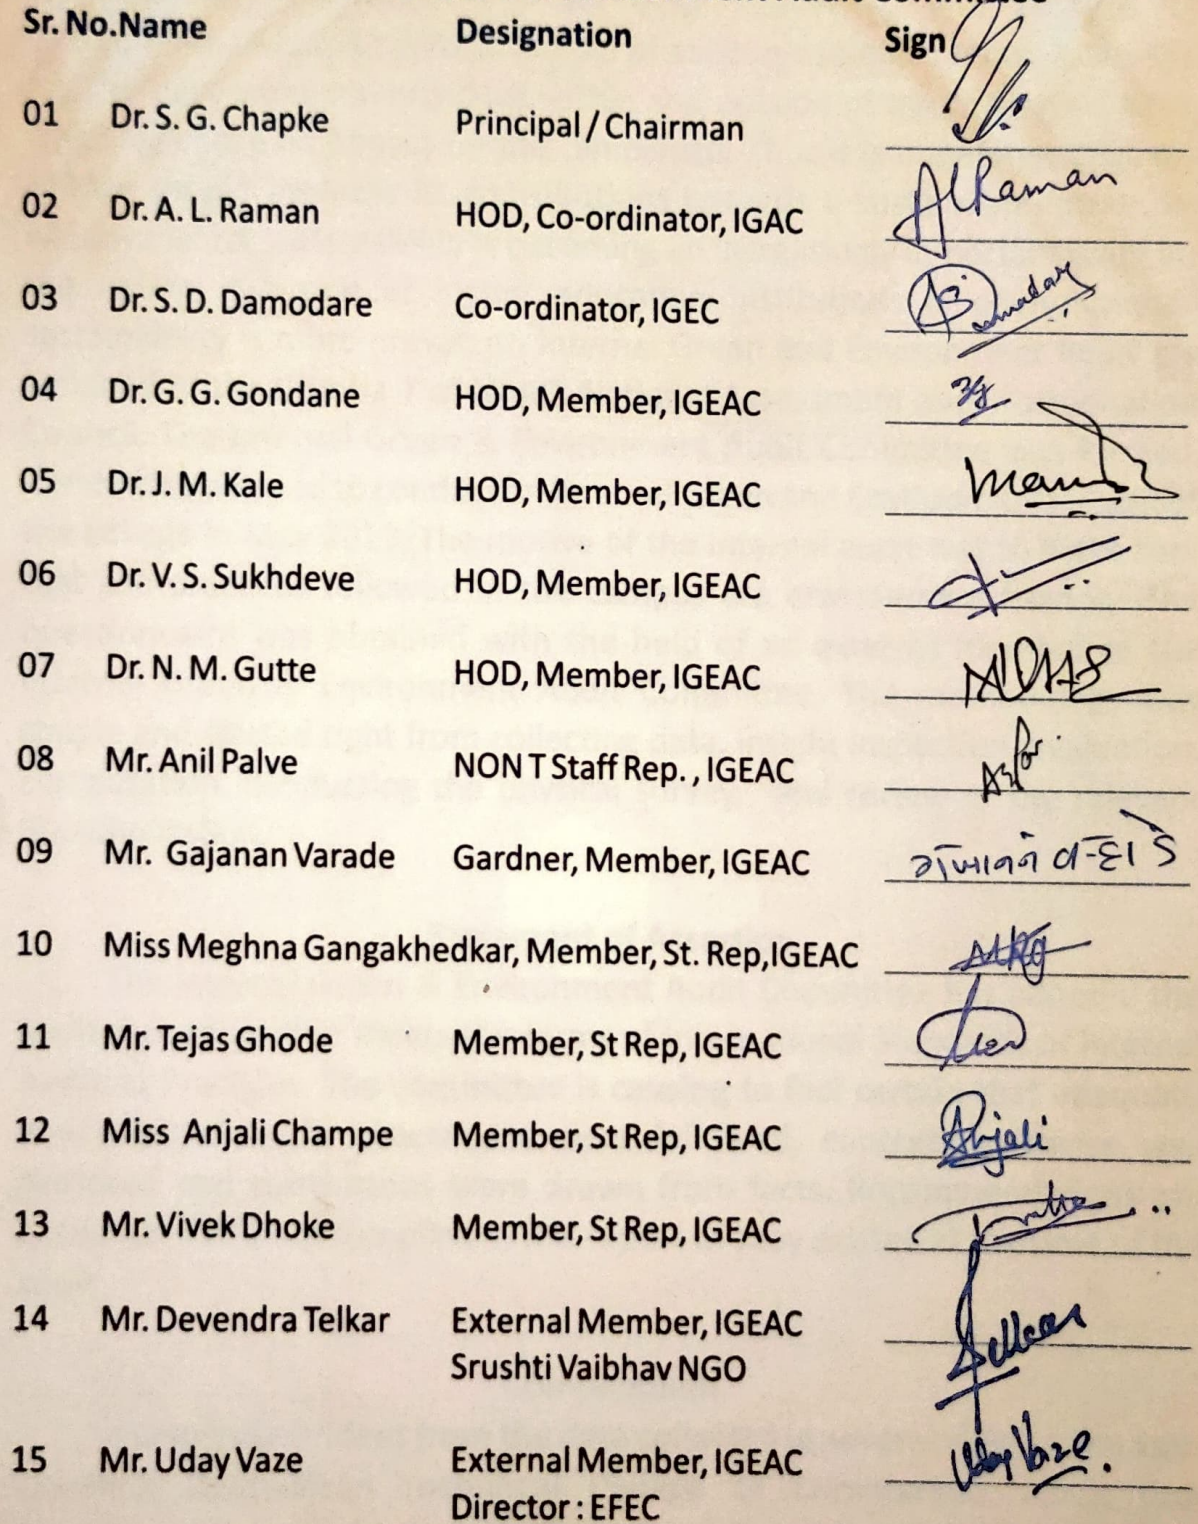 Audit Committee
Sr. No.Name Designation Sign
01 Dr. S. G. Chapke Principal / Chairman
02 Dr. A. L. Raman HOD, Co-ordinator, IGAC ALRaman
03 Dr. S. D. Damodare Co-ordinator, IGEC
04 Dr. G. G. Gondane HOD, Member, IGEAC
05 Dr. J. M. Kale HOD, Member, IGEAC
06 Dr. V. S. Sukhdeve HOD, Member, IGEAC
07 Dr. N. M. Gutte HOD, Member, IGEAC
08 Mr. Anil Palve NON T Staff Rep. , IGEAC
09 Mr. Gajanan Varade Gardner, Member, IGEAC
10 Miss Meghna Gangakhedkar, Member, St. Rep,IGEAC
11 Mr. Tejas Ghode Member, St Rep, IGEAC
12 Miss Anjali Champe Member, St Rep, IGEAC Anjali
13 Mr. Vivek Dhoke Member, St Rep, IGEAC
14 Mr. Devendra Telkar External Member, IGEAC
Srushti Vaibhav NGO
15 Mr. Uday Vaze External Member, IGEAC Uday Vaze.
Director : EFEC